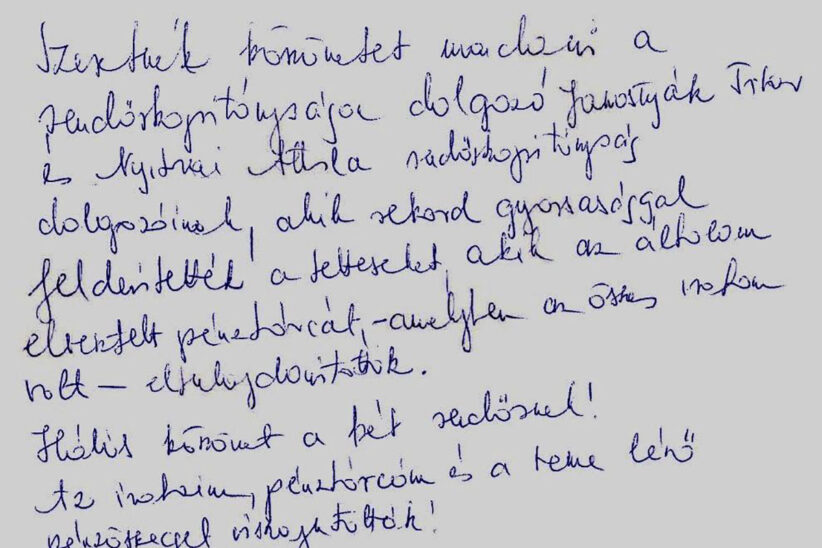 Szeretnék köszönetet mondani a
rendőrkapitányságon dolgozó Jánostyák Tibor
és Nyitrai Attila rendőrkapitányság
dolgozóinak, akik rekord gyorsasággal
felderítették a tetteseket akik az általam
elvesztett pénztárcát, -amelyben az összes iratom
volt - eltulajdonították.
Hálás köszönet a két rendőrnek!
Az irataim, pénztárcám és a benne lévő
pénzösszeggel visszajutották!